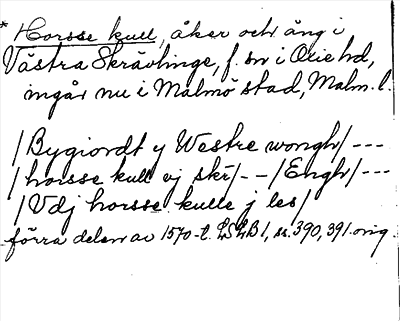 * Horsse kull, åker och äng i
Västra Skrävlinge, f. sn i Oxie hd,
ingår nu i Malmö stad, Malm. l.
/Bygiordt y Westre wongh/ ---
/horsse kull ej skr/ -- /Engh/ ---
/Vdj horsse kulle j les/
förra delen av 1570-t. LSLB 1, ss. 390, 391. orig.